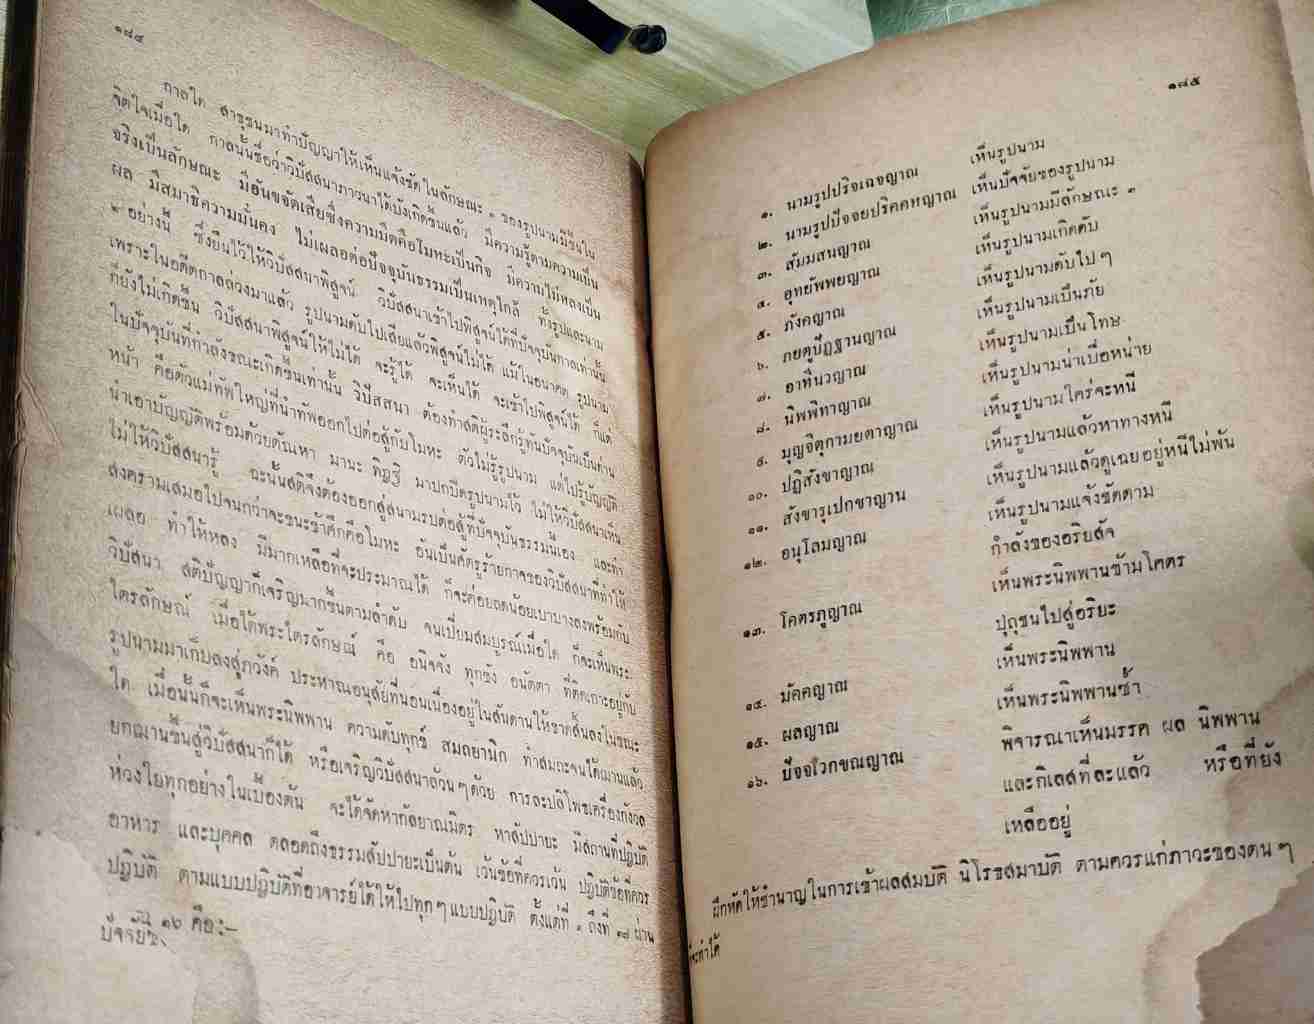 ๑๘๔
กาลใด สาธุชนมาทำปัญญาให้เห็นแจ้งชัดในลักษณะ ๓ ของรูปนามมีขึ้นใน
จิตใจเมื่อใด กาลนั้นชื่อว่าวิปัสสนาภาวนาได้บังเกิดขึ้นแล้ว มีความรู้ตามความเป็น
จริงเป็นลักษณะ มีอันขจัดเสียซึ่งความมืดคือโมหะเป็นกิจ มีความไม่หลงเป็น
ผล มีสมาธิความมั่นคง ไม่เผลอต่อปัจจุบันธรรมเป็นเหตุใกล้ ทั้งรูปและนาม
๒ อย่างนี้ ซึ่งยืนไว้ให้วิปัสสนาพิสูจน์ วิปัสสนาเข้าไปพิสูจน์ได้ที่ปัจจุบันกาลเท่านั้น
เพราะในอดีตกาลล่วงมาแล้ว รูปนามดับไปเสียแล้วพิสูจน์ไม่ได้ แม้ในอนาคต รูปนาม
ก็ยังไม่เกิดขึ้น วิปัสสนาพิสูจน์ให้ไม่ได้ จะรู้ได้ จะเห็นได้ จะเข้าไปพิสูจน์ได้ ก็แต่
ในปัจจุบันที่กำลังขณะเกิดขึ้นเท่านั้น วิปัสสนา ต้องทำสติผู้ระลึกรู้ทันปัจจุบันเป็นด่าน
หน้า คือตัวแม่ทัพใหญ่ที่นำทัพออกไปต่อสู้กับโมหะ ตัวไม่รู้รูปนาม แต่ไปรู้บัญญัติ
นำเอาบัญญัติพร้อมด้วยตัณหา มานะ ทิฏฐิ มาปกปิดรูปนามไว้ ไม่ให้วิปัสสนาเห็น
ไม่ให้วิปัสสนารู้ ฉะนั้นสติจึงต้องออกสู่สนามรบต่อสู้ที่ปัจจุบันธรรมนี้เอง และทำ
สงครามเสมอไปจนกว่าจะชนะข้าศึกคือโมหะ อันเป็นศัตรูร้ายกาจของวิปัสสนาที่ทำให้
เผลอ ทำให้หลง มีมากเหลือที่จะประมาณได้ ก็จะค่อยลดน้อยเบาบางลงพร้อมกับ
วิปัสนา สติปัญญาก็เจริญมากขึ้นตามลำดับ จนเปี่ยมสมบูรณ์เมื่อใด ก็จะเห็นพระ
ไตรลักษณ์ เมื่อใดพระไตรลักษณ์ คือ อนิจจัง ทุกขัง อนัตตา ที่ติดเกาะอยู่กับ
รูปนามมาเก็บลงสู่ภวังค์ ประหาณอนุสัยที่นอนเนื่องอยู่ในสันดานให้ขาดสิ้นลงในขณะ
ใด เมื่อนั้นก็จะเห็นพระนิพพาน ความดับทุกข์ สมถยานิก ทำสมถะจนได้ฌานแล้ว
ยกฌานขึ้นสู่วิปัสสนาก็ได้ หรือเจริญวิปัสสนาล้วนๆด้วย การละปลิโพธเครื่องกังวล
ห่วงใยทุกอย่างในเบื้องต้น จะได้จัดหากัลยาณมิตร หาสัปปายะ มีสถานที่ปฏิบัติ
อาหาร และบุคคล ตลอดถึงธรรมสัปปายะเป็นต้น เว้นข้อที่ควรเว้น ปฏิบัติข้อที่ควร
ปฏิบัติ ตามแบบปฏิบัติที่อาจารย์ได้ให้ไปทุกๆแบบปฏิบัติ ตั้งแต่ที่ ๑ ถึงที่ ๑๗ ผ่าน
๑๖ คือ:–
๑๘๕
๑. นามรูปปริจเฉจญาณ เห็นรูปนาม
๒. นามรูปปัจจยปริคคหญาณ เห็นปัจจัยของรูปนาม
๓. สัมมสนญาณ เห็นรูปนามมีลักษณะ ๓
๔. อุทยัพพยญาณ เห็นรูปนามเกิดดับ
๕. ภังคญาณ เห็นรูปนามดับไปๆ
๖. ภยตูปัฏฐานญาณ เห็นรูปนามเป็นภัย
๗. อาทีนวญาณ เห็นรูปนามเป็นโทษ
๘. นิพพิทาญาณ เห็นรูปนามน่าเบื่อหน่าย
๙. มุญจิตุกามยตาญาณ เห็นรูปนามใคร่จะหนี
๑๐. ปฏิสังขาญาณ เห็นรูปนามแล้วหาทางหนี
๑๑. สังขารุเปกขาญาน เห็นรูปนามแล้วดูเฉยอยู่หนีไม่พ้น
๑๒. อนุโลมญาณ เห็นรูปนามแจ้งชัดตาม
กำลังของอริยสัจ
๑๓. โคตรภูญาณ เห็นพระนิพพานข้ามโคตร
ปุถุชนไปสู่อริยะ
๑๔. มัคคญาณ เห็นพระนิพพาน
๑๕. ผลญาณ เห็นพระนิพพานซ้ำ
๑๖. ปัจจเวกขณญาณ พิจารณาเห็นมรรค ผล นิพพาน
และกิเลสที่ละแล้ว หรือที่ยัง
เหลืออยู่
ฝึกหัดให้ชำนาญในการเข้าผลสมบัติ นิโรธสมาบัติ ตามควรแก่ภาวะของตนๆ
จะทำได้